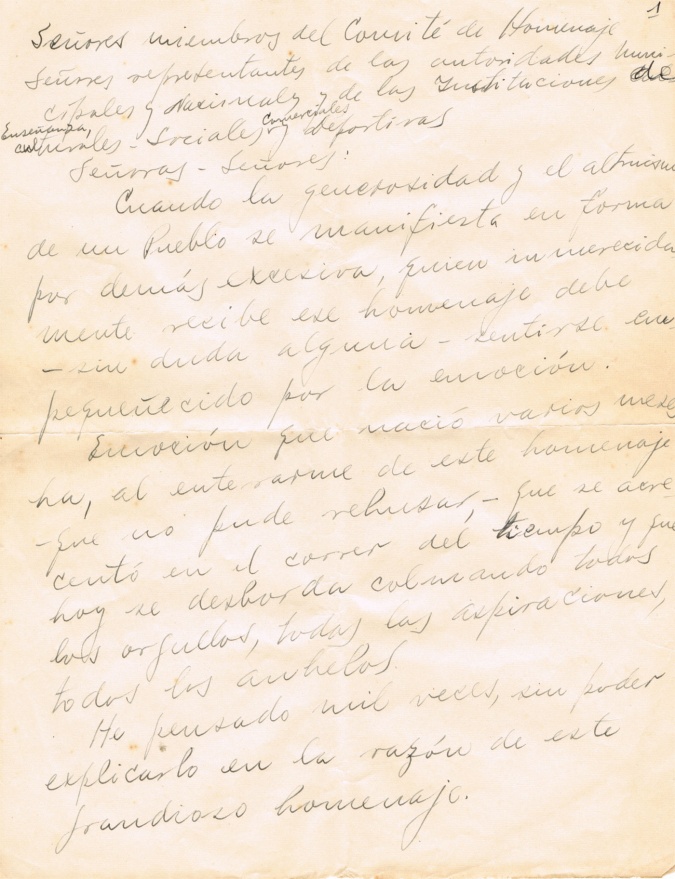 1
Señores miembros del Comité de Homenaje
Señores representantes de las autoridades Muni-
cipales y Nacionales y de las Instituciones de
Enseñanza, Comerciales
culturales - Sociales y deportivas
Señoras - Señores:
Cuando la generosidad y el altruismo
de un Pueblo se manifiesta en forma
por demás excesiva, quien inmerecida
mente recibe ese homenaje debe
- sin duda alguna - sentirse em
pequeñecido por la emoción.
Emoción que nació varios meses
ha, al enterarme de este homenaje
- que no pude rehusar, - que se acre-
centó en el correr del tiempo y que
hoy se desborda colmando todos
los orgullos, todas las aspiraciones,
todos los anhelos.
He pensado mil veces, sin poder
explicarlo en la razón de este
grandioso homenaje.